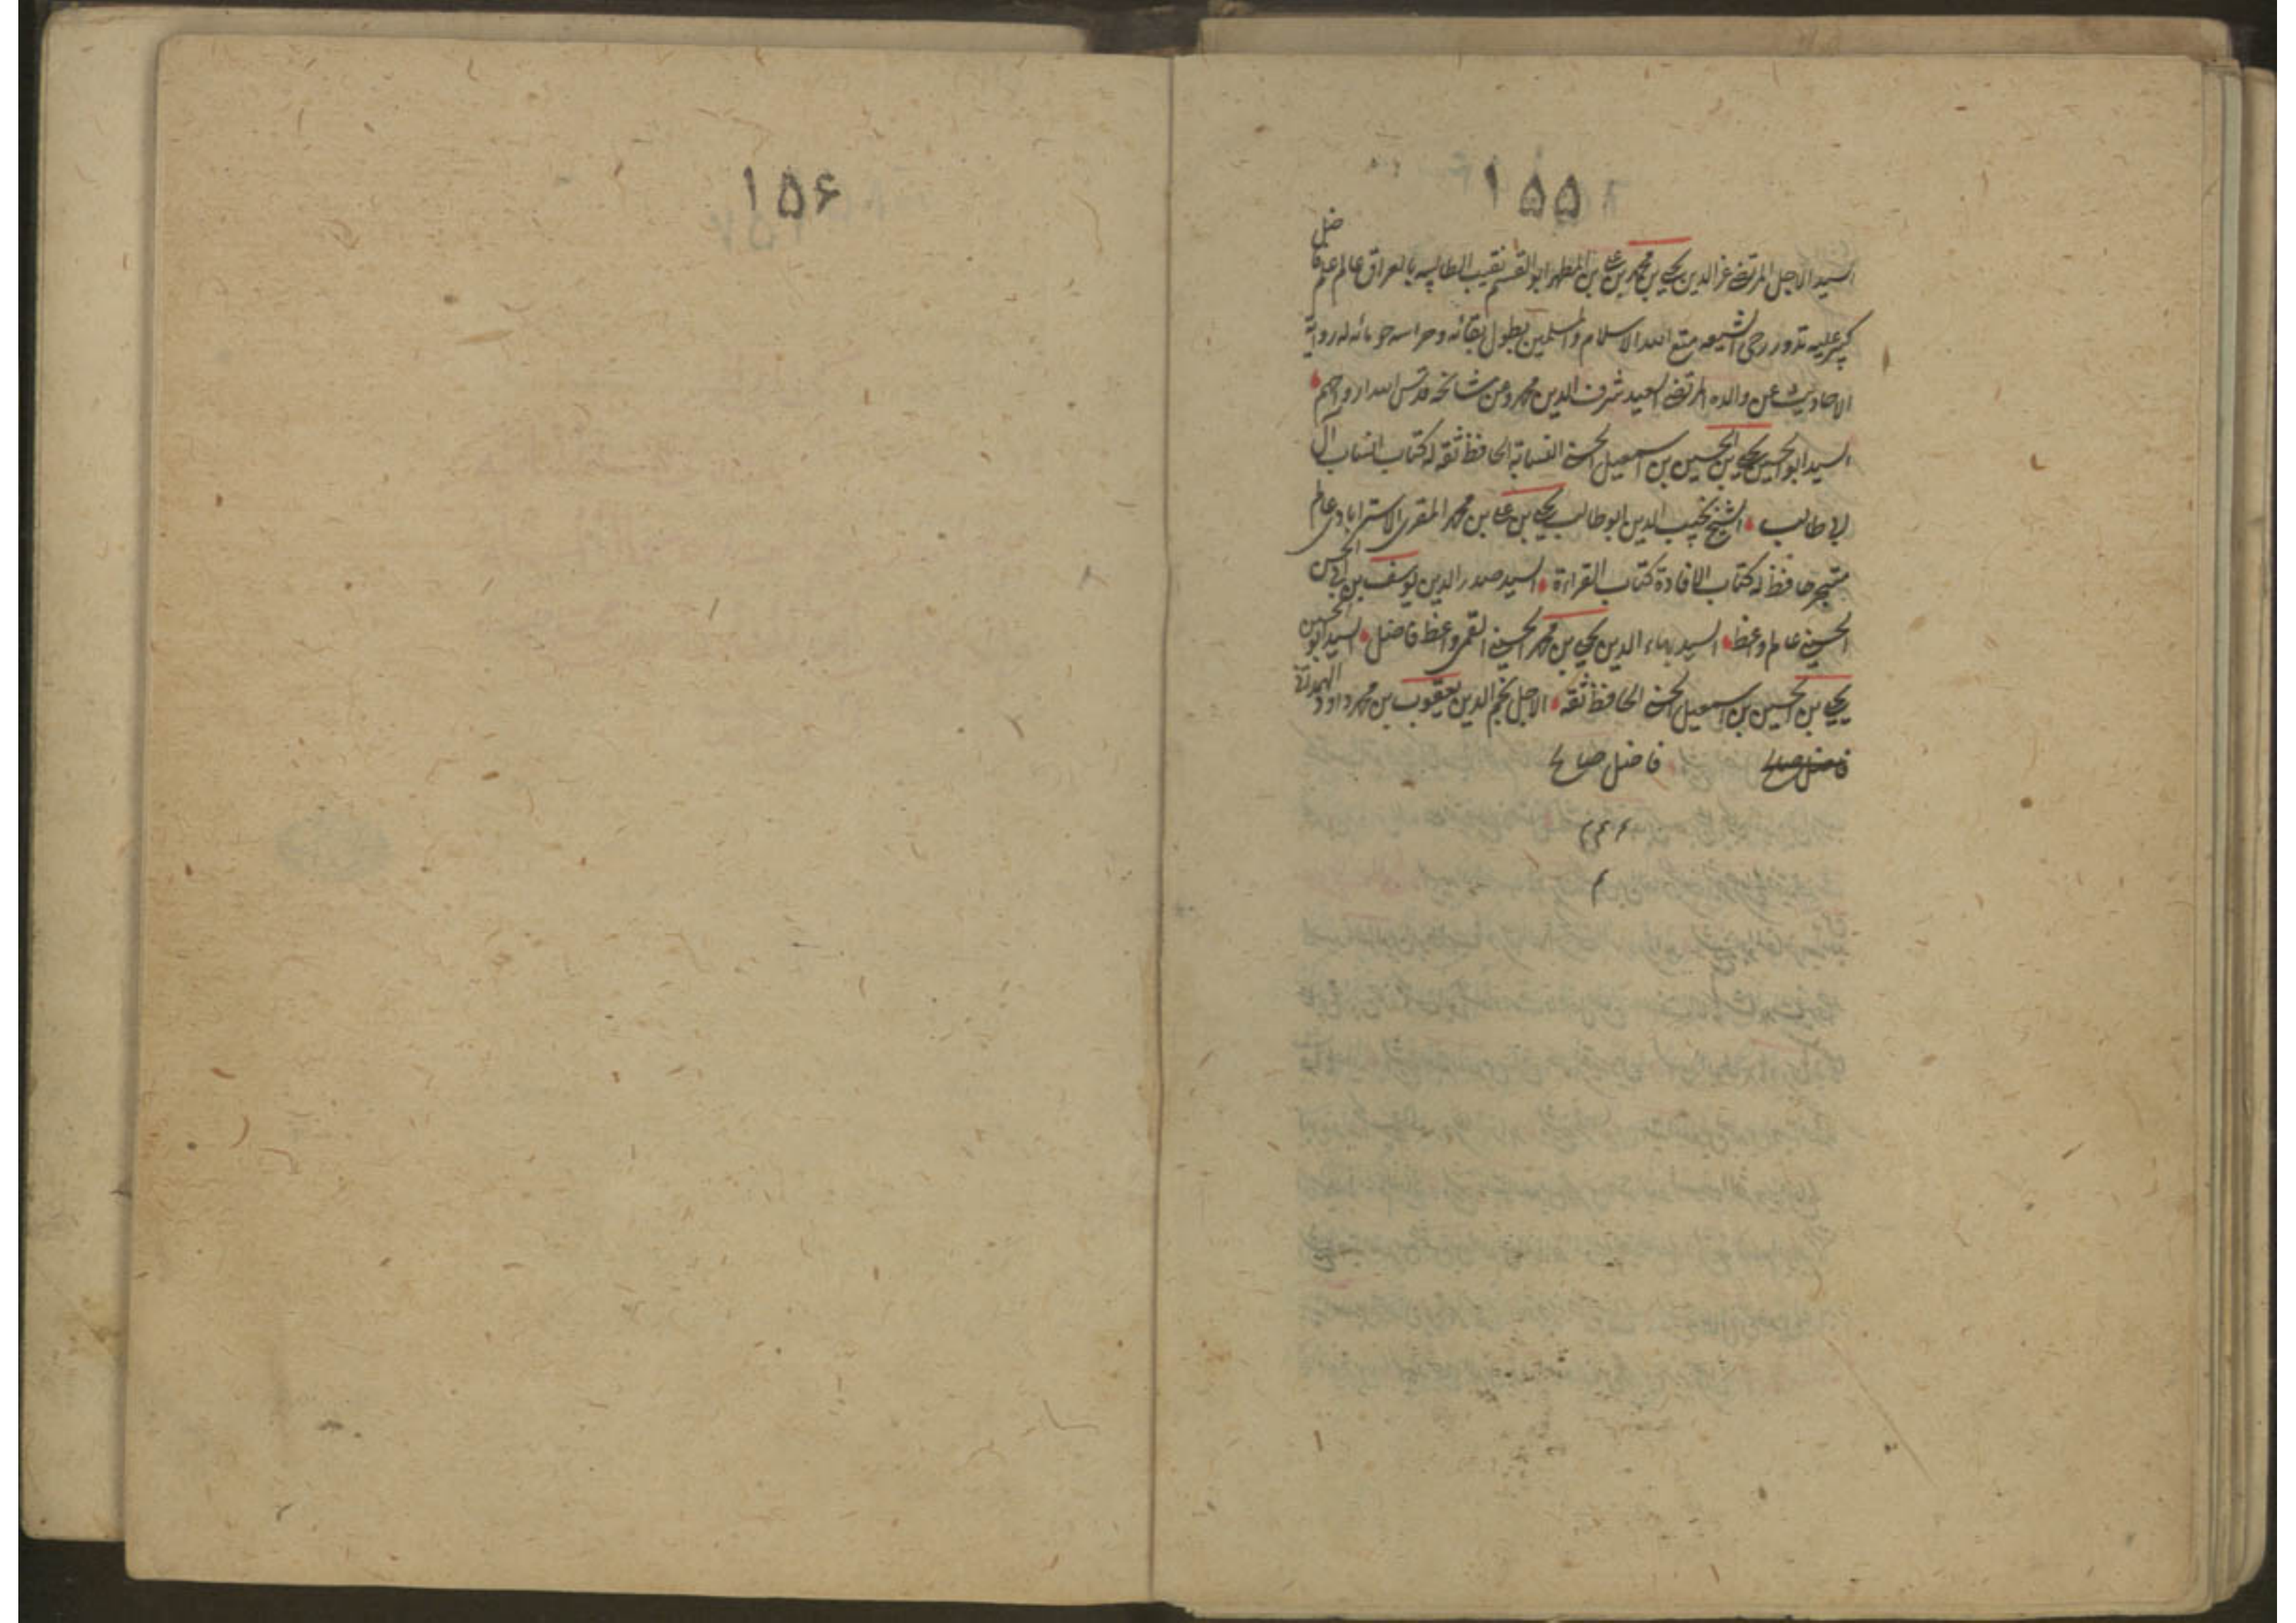 ۱۵۵
السید الاجل المرتضی عز الدین یحیی بن محمد بن علی بن المطهر ابو القسم نقیب الطالبیه بالعراق عالم علم فاضل
کبیر علیه تدور رحی الشیعه متع الله الاسلام والمسلمین بطول بقائه وحراسه حوبائه له روایة
الاحادیث عن والده المرتضی السعید شرف الدین محمد وعن مشایخه قدس الله ارواحهم
السید ابو الحسین یحیی بن الحسین بن اسمعیل الحسنی النسابة الحافظ ثقه له کتاب انساب آل
ابی طالب الشیخ نجیب الدین ابو طالب یحیی بن علی بن محمد المقری الاسترابادی عالم
متبحر حافظ له کتاب الافادة کتاب القراءة السید صدر الدین یوسف بن ابی الحسن
الحسینی عالم واعظ السید بهاء الدین یحیی بن محمد الحسینی القمی واعظ فاضل السید ابو الحسین
یحیی بن الحسین بن اسمعیل الحسنی الحافظ ثقه الاجل نجم الدین یعقوب بن محمد داود الهمدانی
فاضل صالح فاضل صالح
۱۵۶